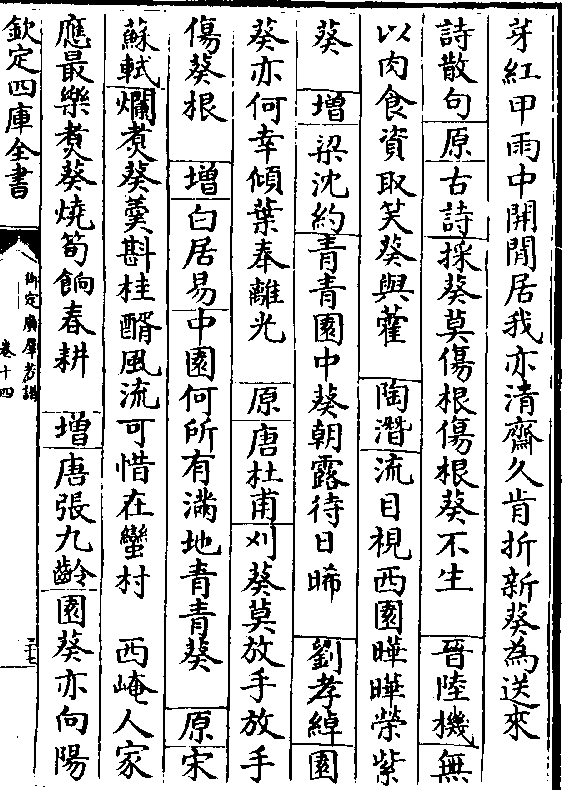 芽紅甲雨中開閒居我亦清齋久肯折新葵為送來
詩散句原古詩採葵莫傷根傷根葵不生　晉陸機無
以肉食資取笑葵與藿　陶潛流目視西園曄曄榮紫
葵　增梁沈約青青園中葵朝露待日晞　劉孝綽園
葵亦何幸傾葉奉離光　原唐杜甫刈葵莫放手放手
傷葵根　增白居易中園何所有滿地青青葵　原宋
蘇軾爛煮葵羹斟桂醑風流可惜在蠻村　西崦人家
應最樂煮葵燒筍餉春耕　增唐張九齡園葵亦向陽
欽定四庫全書
御定廣羣芳譜
卷十四
二十七